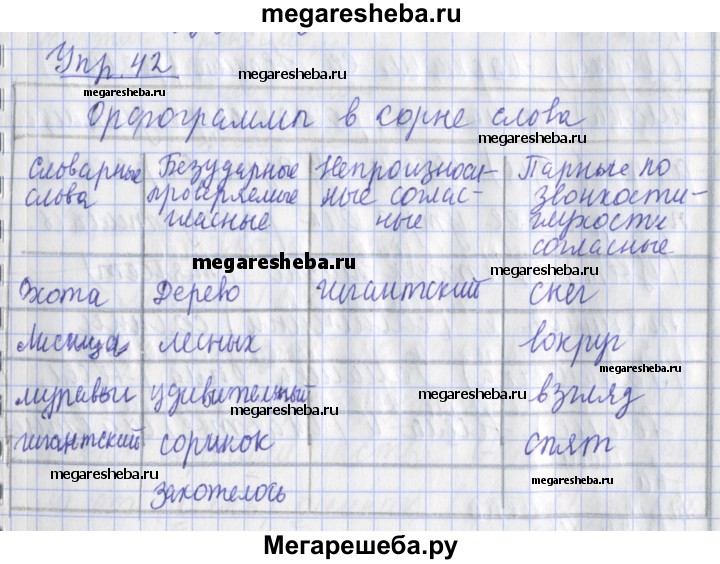 megaresheba.ru
Упр. 42
megaresheba.ru
megaresheba.ru
Орфограммы в корне слова
megaresheba.ru
Словарные Безударные Непроизноси- Парные по
слова проверяемые мые соглас- звонкости-
гласные ные глухости
согласные
megaresheba.ru
megaresheba.ru
Охота Дерево гигантский снег
Лисица лесных вокруг
megaresheba.ru
муравьи удивительный взгляд
megaresheba.ru
megaresheba.ru
гигантский соринок спят
megaresheba.ru
megaresheba.ru
захотелось
Мегарешеба.ру